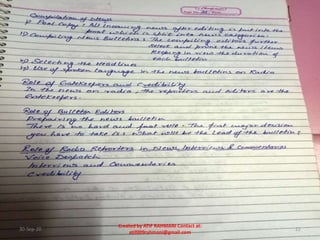 Compilation of News
i) Pool Copy : All incoming news after editing is put into the
pool which is split into news categories.
ii) Compiling News Bulletins : The compiling editors further
select and prune the news items
keeping in view the duration of
each bulletin
iii) Selecting the Headlines
iv) Use of spoken language in the news bulletins on Radio
Role of Gatekeepers and Credibility
In the news on radio, the reporters and editors are the
Gatekeepers.
Role of Bulletin Editors
Preparing the news bulletin
There is no hard and fast rule. The first major decision
you have to take is: What will be the lead of the bulletin?
Role of Radio Reporters in News, Interviews & Commentaries
Voice Despatch
Interviews and Commentaries
Credibility
30-Sep-20
Created by ATIF RAHMANI Contact at: